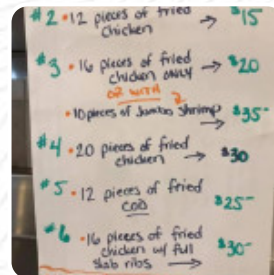 #2 • 12 pieces of fried → $15
chicken
#3 • 16 pieces of fried
chicken ONLY → $20
OR WITH
• 10 pieces of Jumbo shrimp → $35-
#4 • 20 pieces of fried
chicken → $30
#5 • 12 pieces of fried
COD → $25-
#6 • 16 pieces of fried
chicken w/ full → $30-
slab ribs